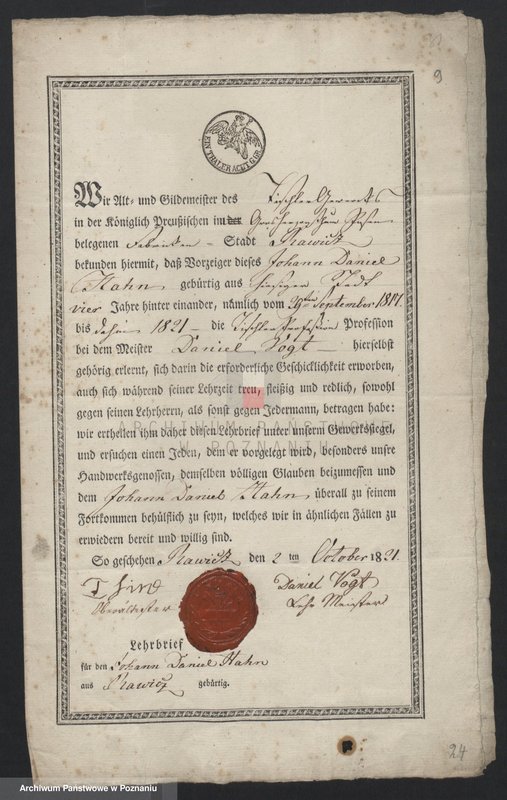 9
EIN THALER ACHT G. GR.
Wir Alt- und Gildemeister des Tischler Gewerks
in der Königlich Preußischen im der Grosherzogthum Posen
belegenen Fabriken - Stadt Rawicz
bekunden hiermit, daß Vorzeiger dieses Johann Daniel
Hahn gebürtig aus hiesiger Stadt
vier Jahre hinter einander, nämlich vom 29ten September 1817.
bis dahin 1821 - die Tischler Profession Profession
bei dem Meister Daniel Vogt hierselbst
gehörig erlernt, sich darin die erforderliche Geschicklichkeit erworben,
auch sich während seiner Lehrzeit treu, fleißig und redlich, sowohl
gegen seinen Lehrherrn, als sonst gegen Jedermann, betragen habe:
wir ertheilen ihm daher diesen Lehrbrief unter unserm Gewerkssiegel,
und ersuchen einen Jeden, dem er vorgelegt wird, besonders unsre
Handwerksgenossen, demselben völligen Glauben beizumessen und
dem Johann Daniel Hahn überall zu seinem
Fortkommen behülflich zu seyn, welches wir in ähnlichen Fällen zu
erwiedern bereit und willig sind.
So geschehen Rawicz den 2 ten October 1821.
Daniel Vogt
Oberältester Lehr Meister
Lehrbrief
für den Johann Daniel Hahn
aus Rawicz gebürtig.
24
ARCHIWUM PAŃSTWOWE
W POZNANIU
Archiwum Państwowe w Poznaniu